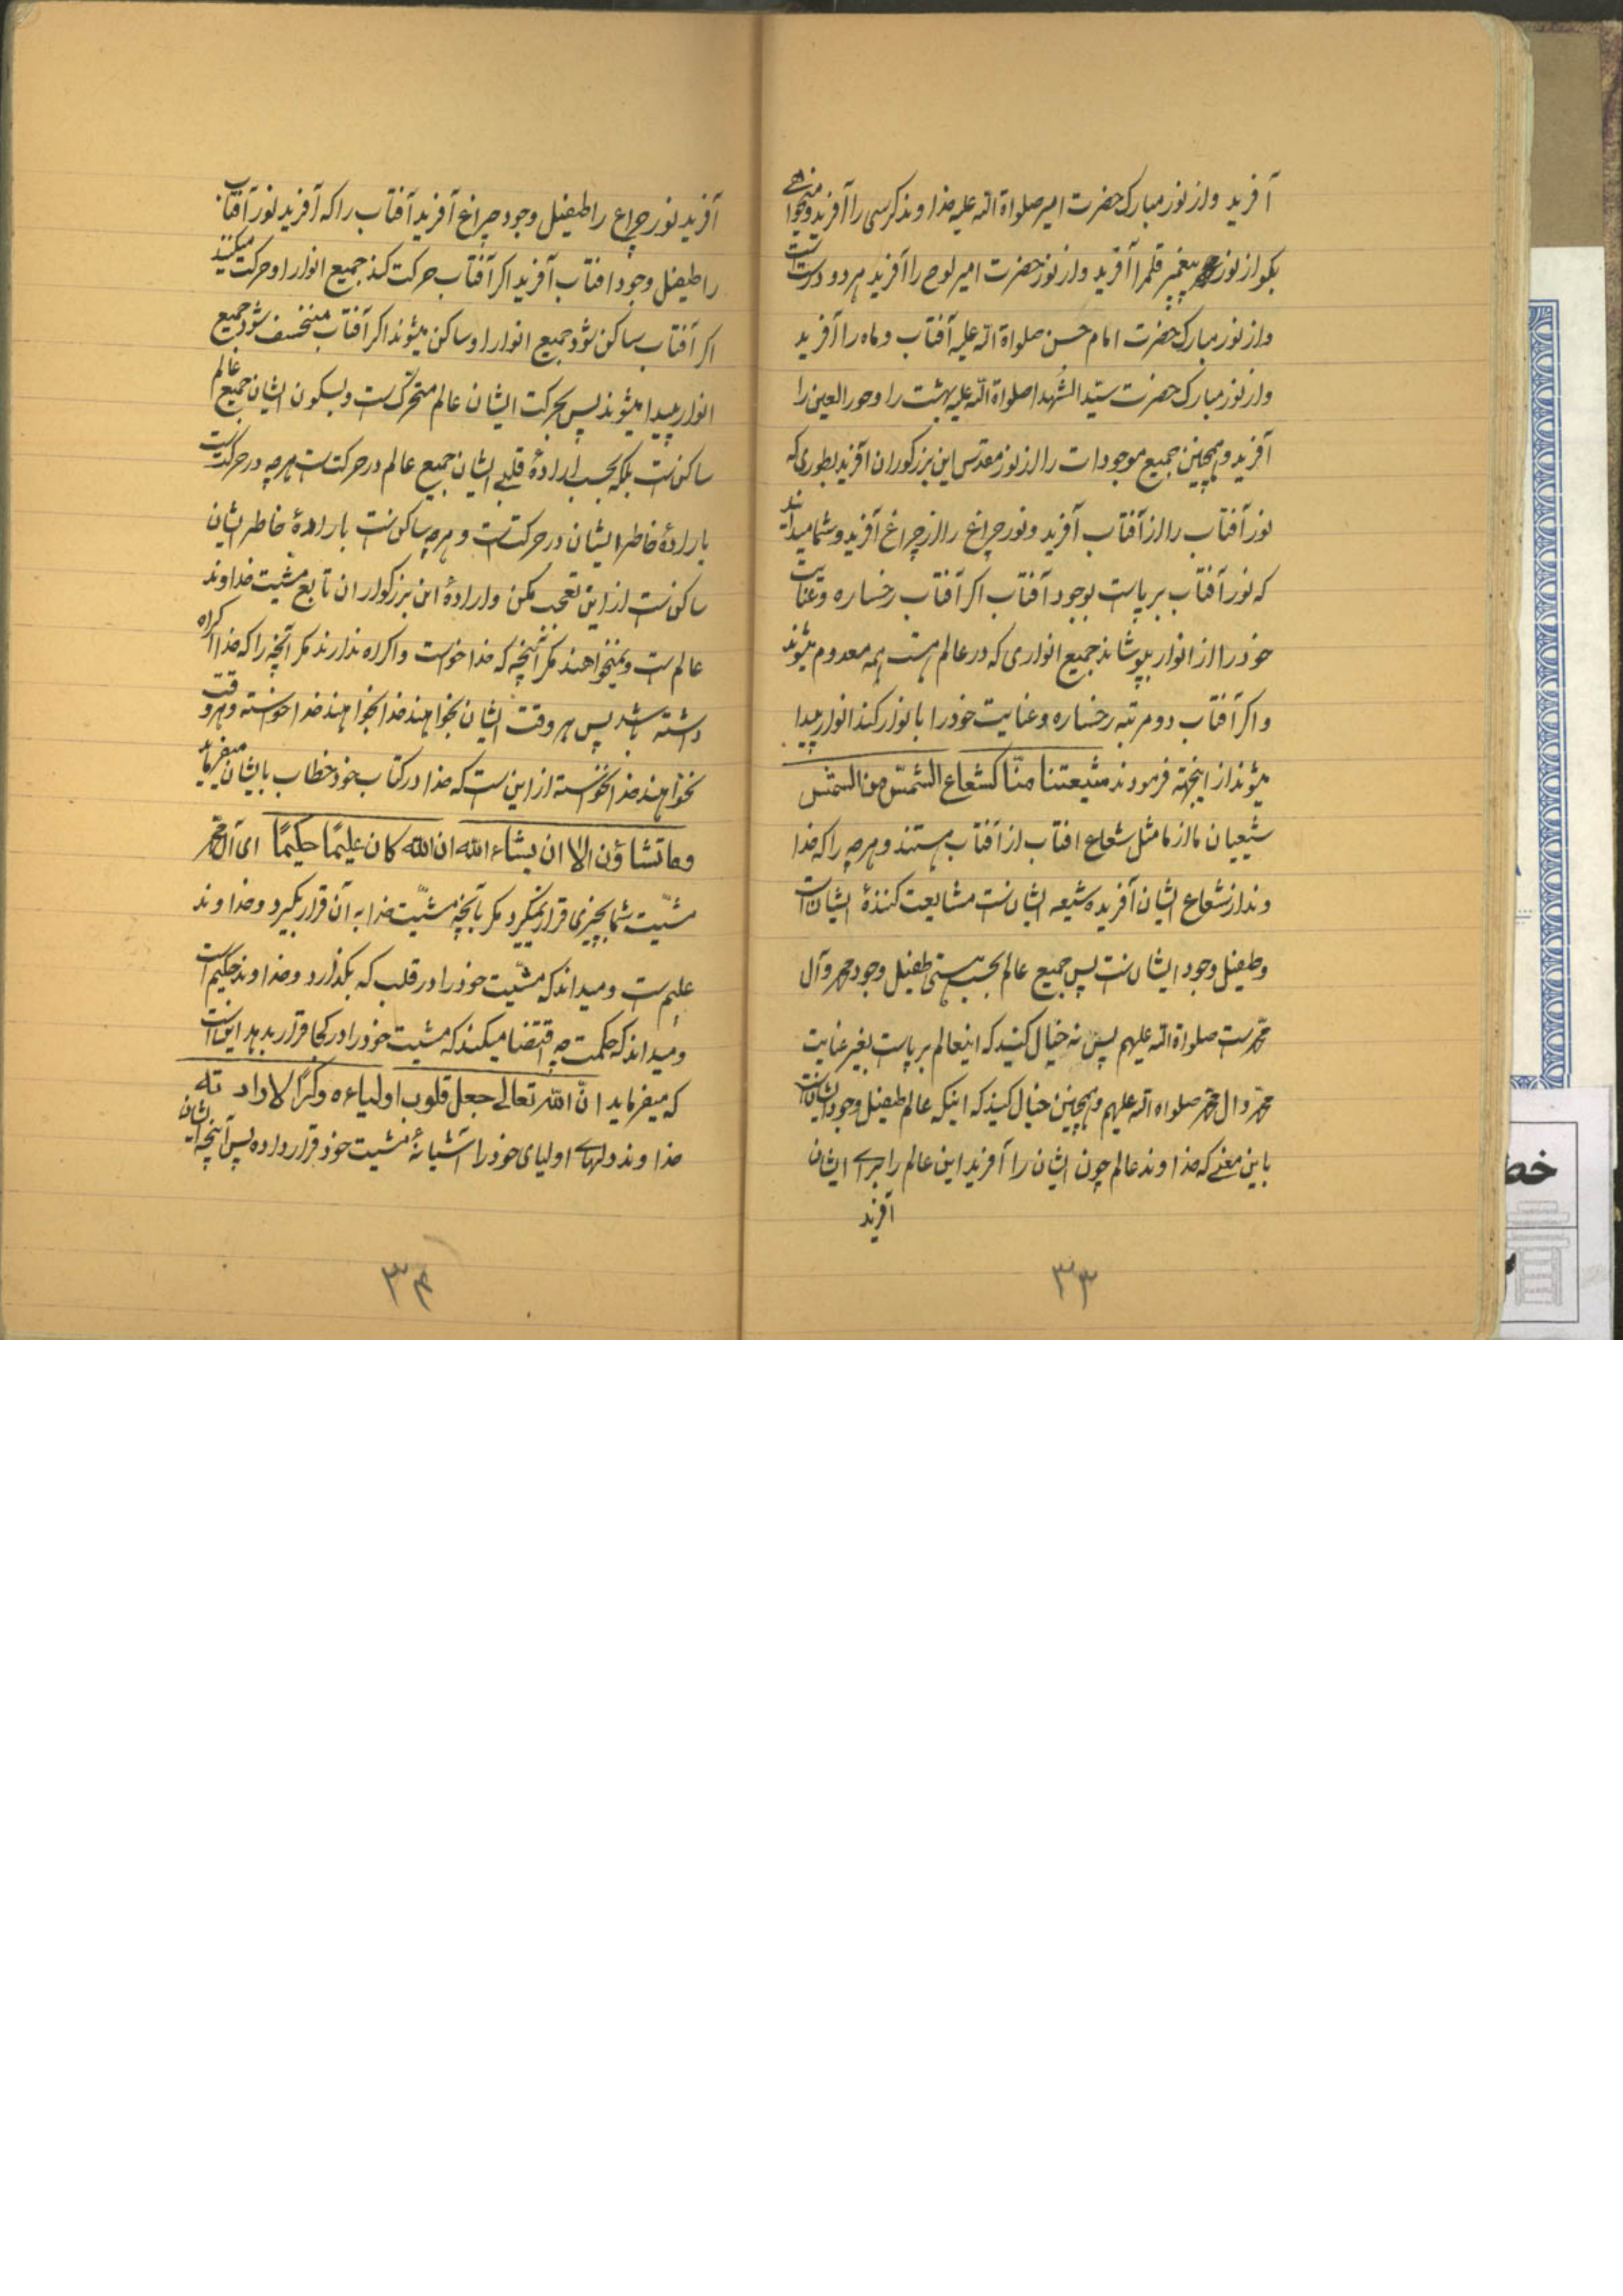 آفرید و از نور مبارک حضرت امیر صلواة الله علیه خداوند کرسی را آفرید و میخواهی
بگو از نور پیغمبر قلم را آفرید و از نور حضرت امیر لوح را آفرید هر دو درست است
و از نور مبارک حضرت امام حسن صلواة الله علیه آفتاب و ماه را آفرید
و از نور مبارک حضرت سیّد الشهدا صلواة الله علیه بهشت را و حور العین را
آفرید و همچنین جمیع موجودات را از نور مقدس این بزرگوران آفرید بطوری که
نور آفتاب را از آفتاب آفرید و نور چراغ را از چراغ آفرید و شما میدانید
که نور آفتاب بر پاست بوجود آفتاب اگر آفتاب رخساره و عنایت
خود را از انوار بپوشاند جمیع انواری که در عالم هست همه معدوم میشوند
و اگر آفتاب دو مرتبه رخساره و عنایت خود را بانوار کند انوار پیدا
میشوند از اینجهة فرمودند شیعتنا منّا کشعاع الشمس من الشمس
شیعیان ما از ما مثل شعاع افتاب از آفتاب هستند و هر چه را که خدا
وند از شعاع ایشان آفریده شیعه ایشانست مشایعت کنندهٔ ایشان است
و طفیل وجود ایشانست پس جمیع عالم بحسب هستی طفیل وجود محمد و آل
محمد ست صلواة الله علیهم پس نه خیال کنید که اینعالم بر پاست بغیر عنایت
محمد و ال محمد صلواه الله علیهم و همچنین خیال کنید که اینکه عالم طفیل وجود ایشانست
باین معنی که خداوند عالم چون ایشان را آفرید این عالم را برای ایشان
آفرید
۳۳
آفرید نور چراغ را طفیل وجود چراغ آفرید آفتاب را که آفرید نور آفتاب
را طفیل وجود افتاب آفرید اگر آفتاب حرکت کند جمیع انوار او حرکت میکنند
اگر آفتاب ساکن شود جمیع انوار او ساکن میشوند اگر آفتاب منخسف شود جمیع
انوار پیدا میشوند پس بحرکت ایشان عالم متحرک ست و بسکون ایشان جمیع عالم
ساکن ست بلکه بحسب ارادهٔ قلبی ایشان جمیع عالم در حرکت ست هر چه در حرکت ست
بارادهٔ خاطر ایشان در حرکت ست و هر چه ساکنست بارادهٔ خاطر ایشان
ساکن ست از این تعجب مکن و ارادهٔ این بزرگواران تابع مشیت خداوند
عالم ست و نمیخواهند مگر آنچه که خدا خواست و اکراه ندارند مگر آنچه را که خدا اکراه
داشته باشد پس هر وقت ایشان بخواهند خدا بخواهند خدا خواسته و هر وقت
نخواهند خدا نخواسته از این ست که خدا در کتاب خود خطاب بایشان میفرماید
و ما تشاؤن الا ان یشاء الله ان الله کان علیمًا حکیمًا ای آل محمد
مشیّت شما بچیزی قرار نمیگیرد مگر بآنچه مشیّت خدا به آن قرار بگیرد و خداوند
علیم ست و میداند که مشیّت خود را در قلب که بگذارد و خداوند حکیم است
و میداند که حکمت چه اقتضا میکند که مشیت خود را در کجا قرار بدهد این است
که میفرماید انّ الله تعالی جعل قلوب اولیاءه وکرًا لارادته
خداوند دلهای اولیای خود را آشیانهٔ مشیت خود قرار داده پس آنچه ایشان
۳۴
خط